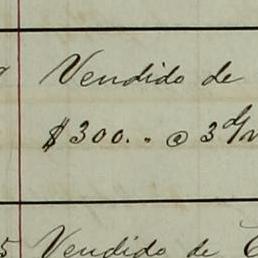 Vendido de
$300.. @ 3 d/v
5 Vendido de